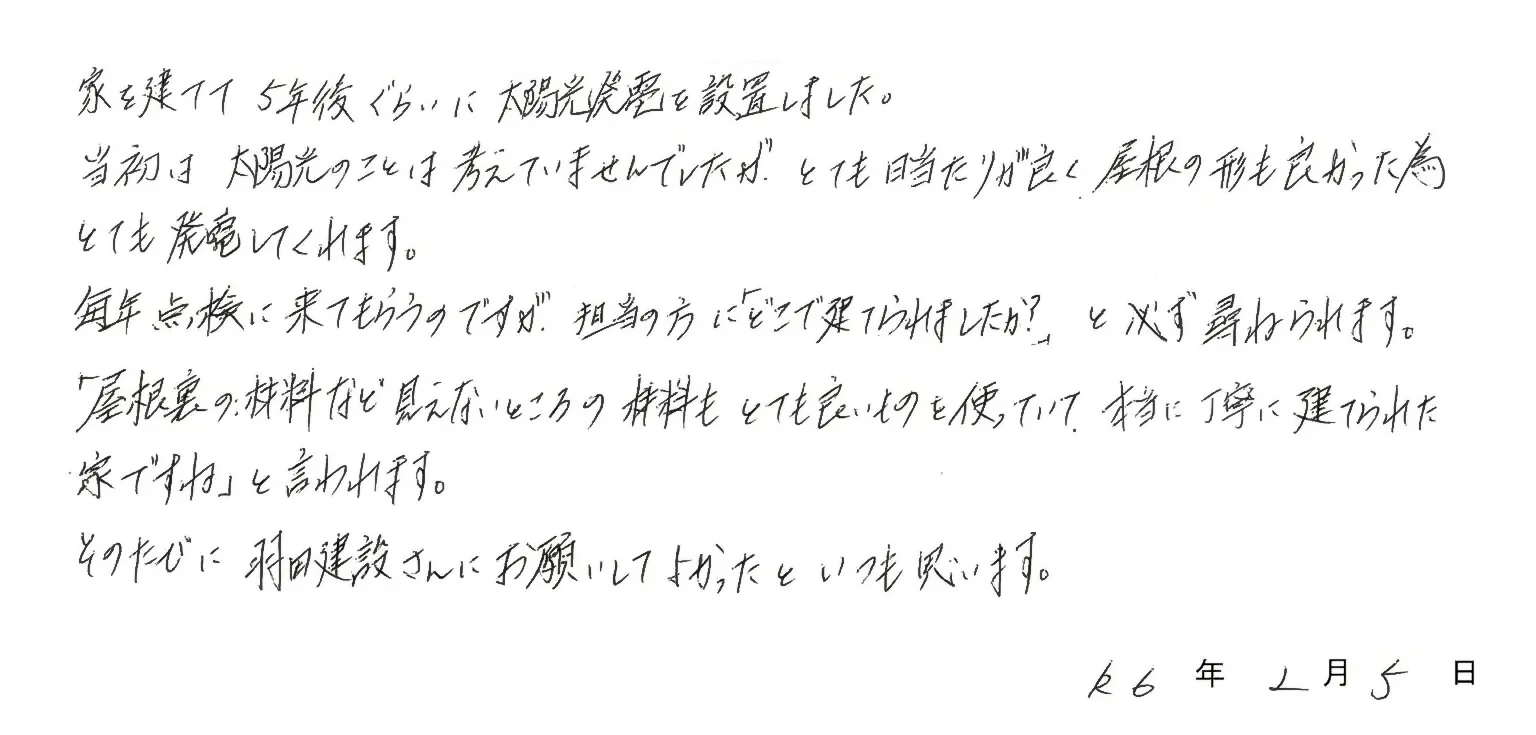 家を建てて 5年後ぐらいに 太陽光発電を設置しました。
当初は 太陽光のことは考えていませんでしたが とても日当たりが良く 屋根の形も良かった為
とても発電してくれます。
毎年点検に来てもらうのですが 担当の方に「どこで建てられましたか?」と必ず尋ねられます。
「屋根裏の材料など見えないところの材料も とても良いものを使っていて 本当に丁寧に建てられた
家ですね」と言われます。
そのたびに 羽田建設さんにお願いしてよかったと いつも思います。
R6 年 2 月 5 日